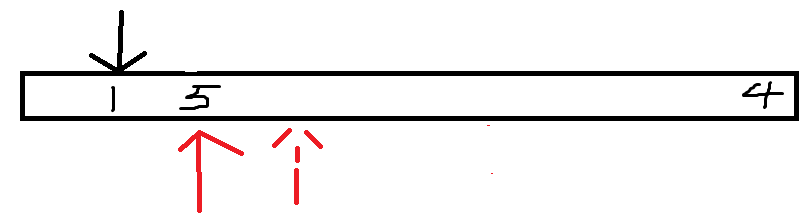 1 5 4